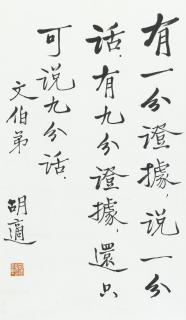 有一分證據，說一分
話．有九分證據，還只
可說九分話．
文伯弟
胡適